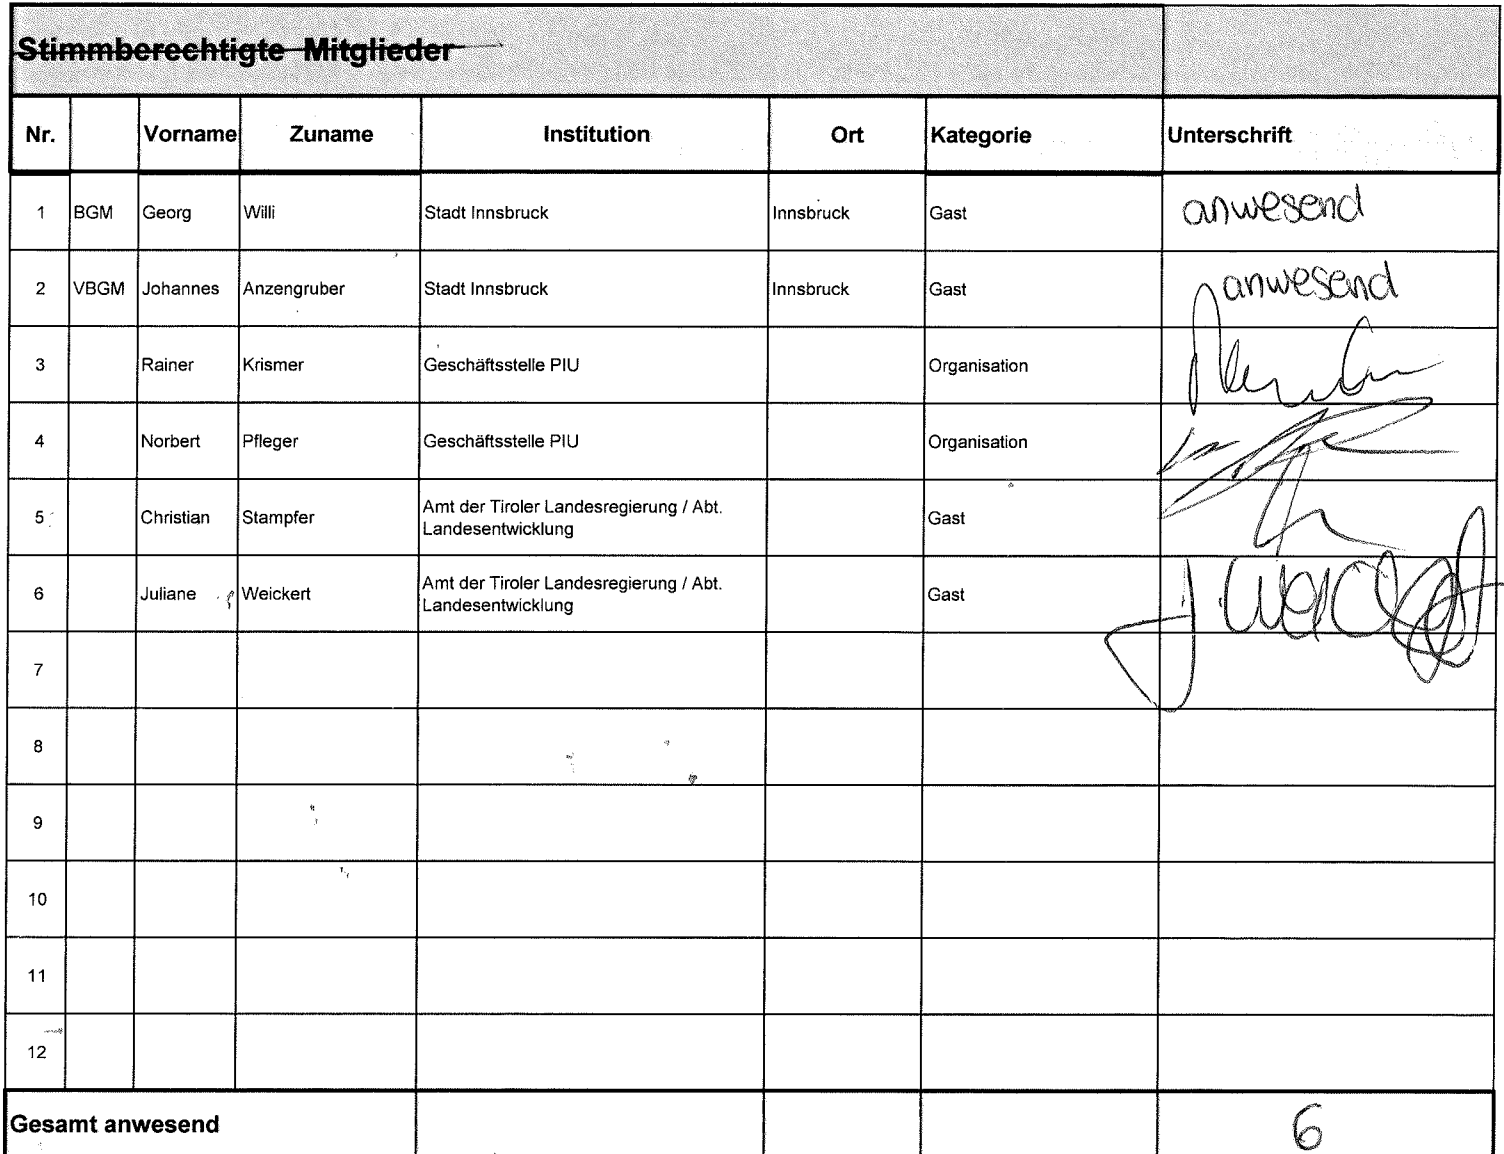 Stimmberechtigte Mitglieder
Nr. Vorname Zuname Institution Ort Kategorie Unterschrift
1 BGM Georg Willi Stadt Innsbruck Innsbruck Gast anwesend
2 VBGM Johannes Anzengruber Stadt Innsbruck Innsbruck Gast anwesend
3 Rainer Krismer Geschäftsstelle PIU Organisation
4 Norbert Pfleger Geschäftsstelle PIU Organisation
5 Christian Stampfer Amt der Tiroler Landesregierung / Abt. Gast
Landesentwicklung
6 Juliane Weickert Amt der Tiroler Landesregierung / Abt. Gast
Landesentwicklung
7
8
9
10
11
12
Gesamt anwesend 6